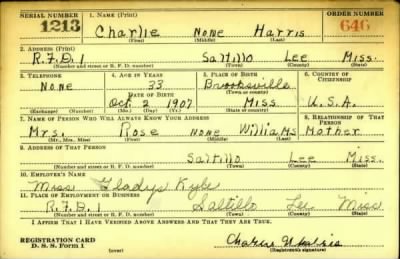 SERIAL NUMBER 1. NAME (Print) ORDER NUMBER
1213 Charlie None Harris 646
(First) (Middle) (Last)
2. ADDRESS (Print)
R.F.D. 1 Saltillo Lee Miss.
(Number and street or R. F. D. number) (Town) (County) (State)
3. TELEPHONE 4. AGE IN YEARS 5. PLACE OF BIRTH 6. COUNTRY OF CITIZENSHIP
None 33 Brooksville
DATE OF BIRTH (Town or county)
Oct 2 1907 Miss U.S.A.
(Exchange) (Number) (Mo.) (Day) (Yr.) (State or country)
7. NAME OF PERSON WHO WILL ALWAYS KNOW YOUR ADDRESS 8. RELATIONSHIP OF THAT PERSON
Mrs. Rose None Williams Mother
(Mr., Mrs., Miss) (First) (Middle) (Last)
9. ADDRESS OF THAT PERSON
Saltillo Lee Miss.
(Number and street or R. F. D. number) (Town) (County) (State)
10. EMPLOYER'S NAME
Miss Gladys Kyle
11. PLACE OF EMPLOYMENT OR BUSINESS
R.F.D. 1 Saltillo Lee Miss
(Number and street or R. F. D. number) (Town) (County) (State)
I AFFIRM THAT I HAVE VERIFIED ABOVE ANSWERS AND THAT THEY ARE TRUE.
REGISTRATION CARD
D. S. S. Form 1 (over) (Registrant's signature)